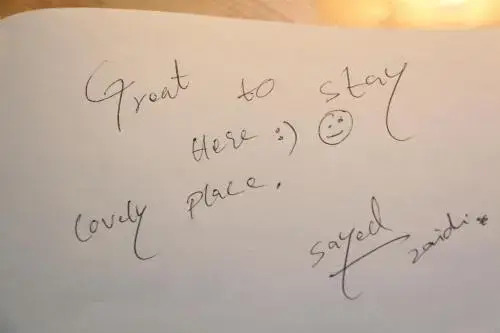 Great to stay
Here :) ☺
lovely place.
sayed
zaidi